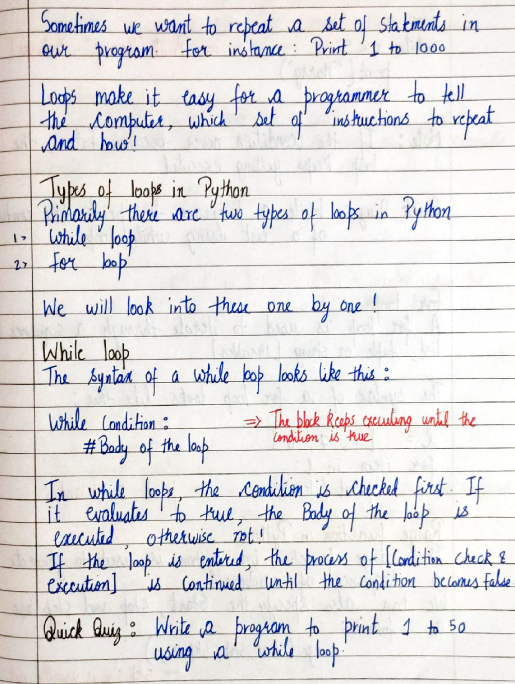 Sometimes we want to repeat a set of statements in
our program. for instance : Print 1 to 1000
Loops make it easy for a programmer to tell
the computer, which set of instructions to repeat
and how!
Types of loops in Python
Primarily there are two types of loops in Python
1> While loop
2> for loop
We will look into these one by one !
While loop
The syntax of a while loop looks like this :
While Condition :
# Body of the loop
⇒ The block keeps executing until the
condition is true
In while loops, the condition is checked first. If
it evaluates to true, the Body of the loop is
executed, otherwise not !
If the loop is entered, the process of [Condition check &
execution] is continued until the condition becomes false.
Quick Quiz : Write a program to print 1 to 50
using a while loop.